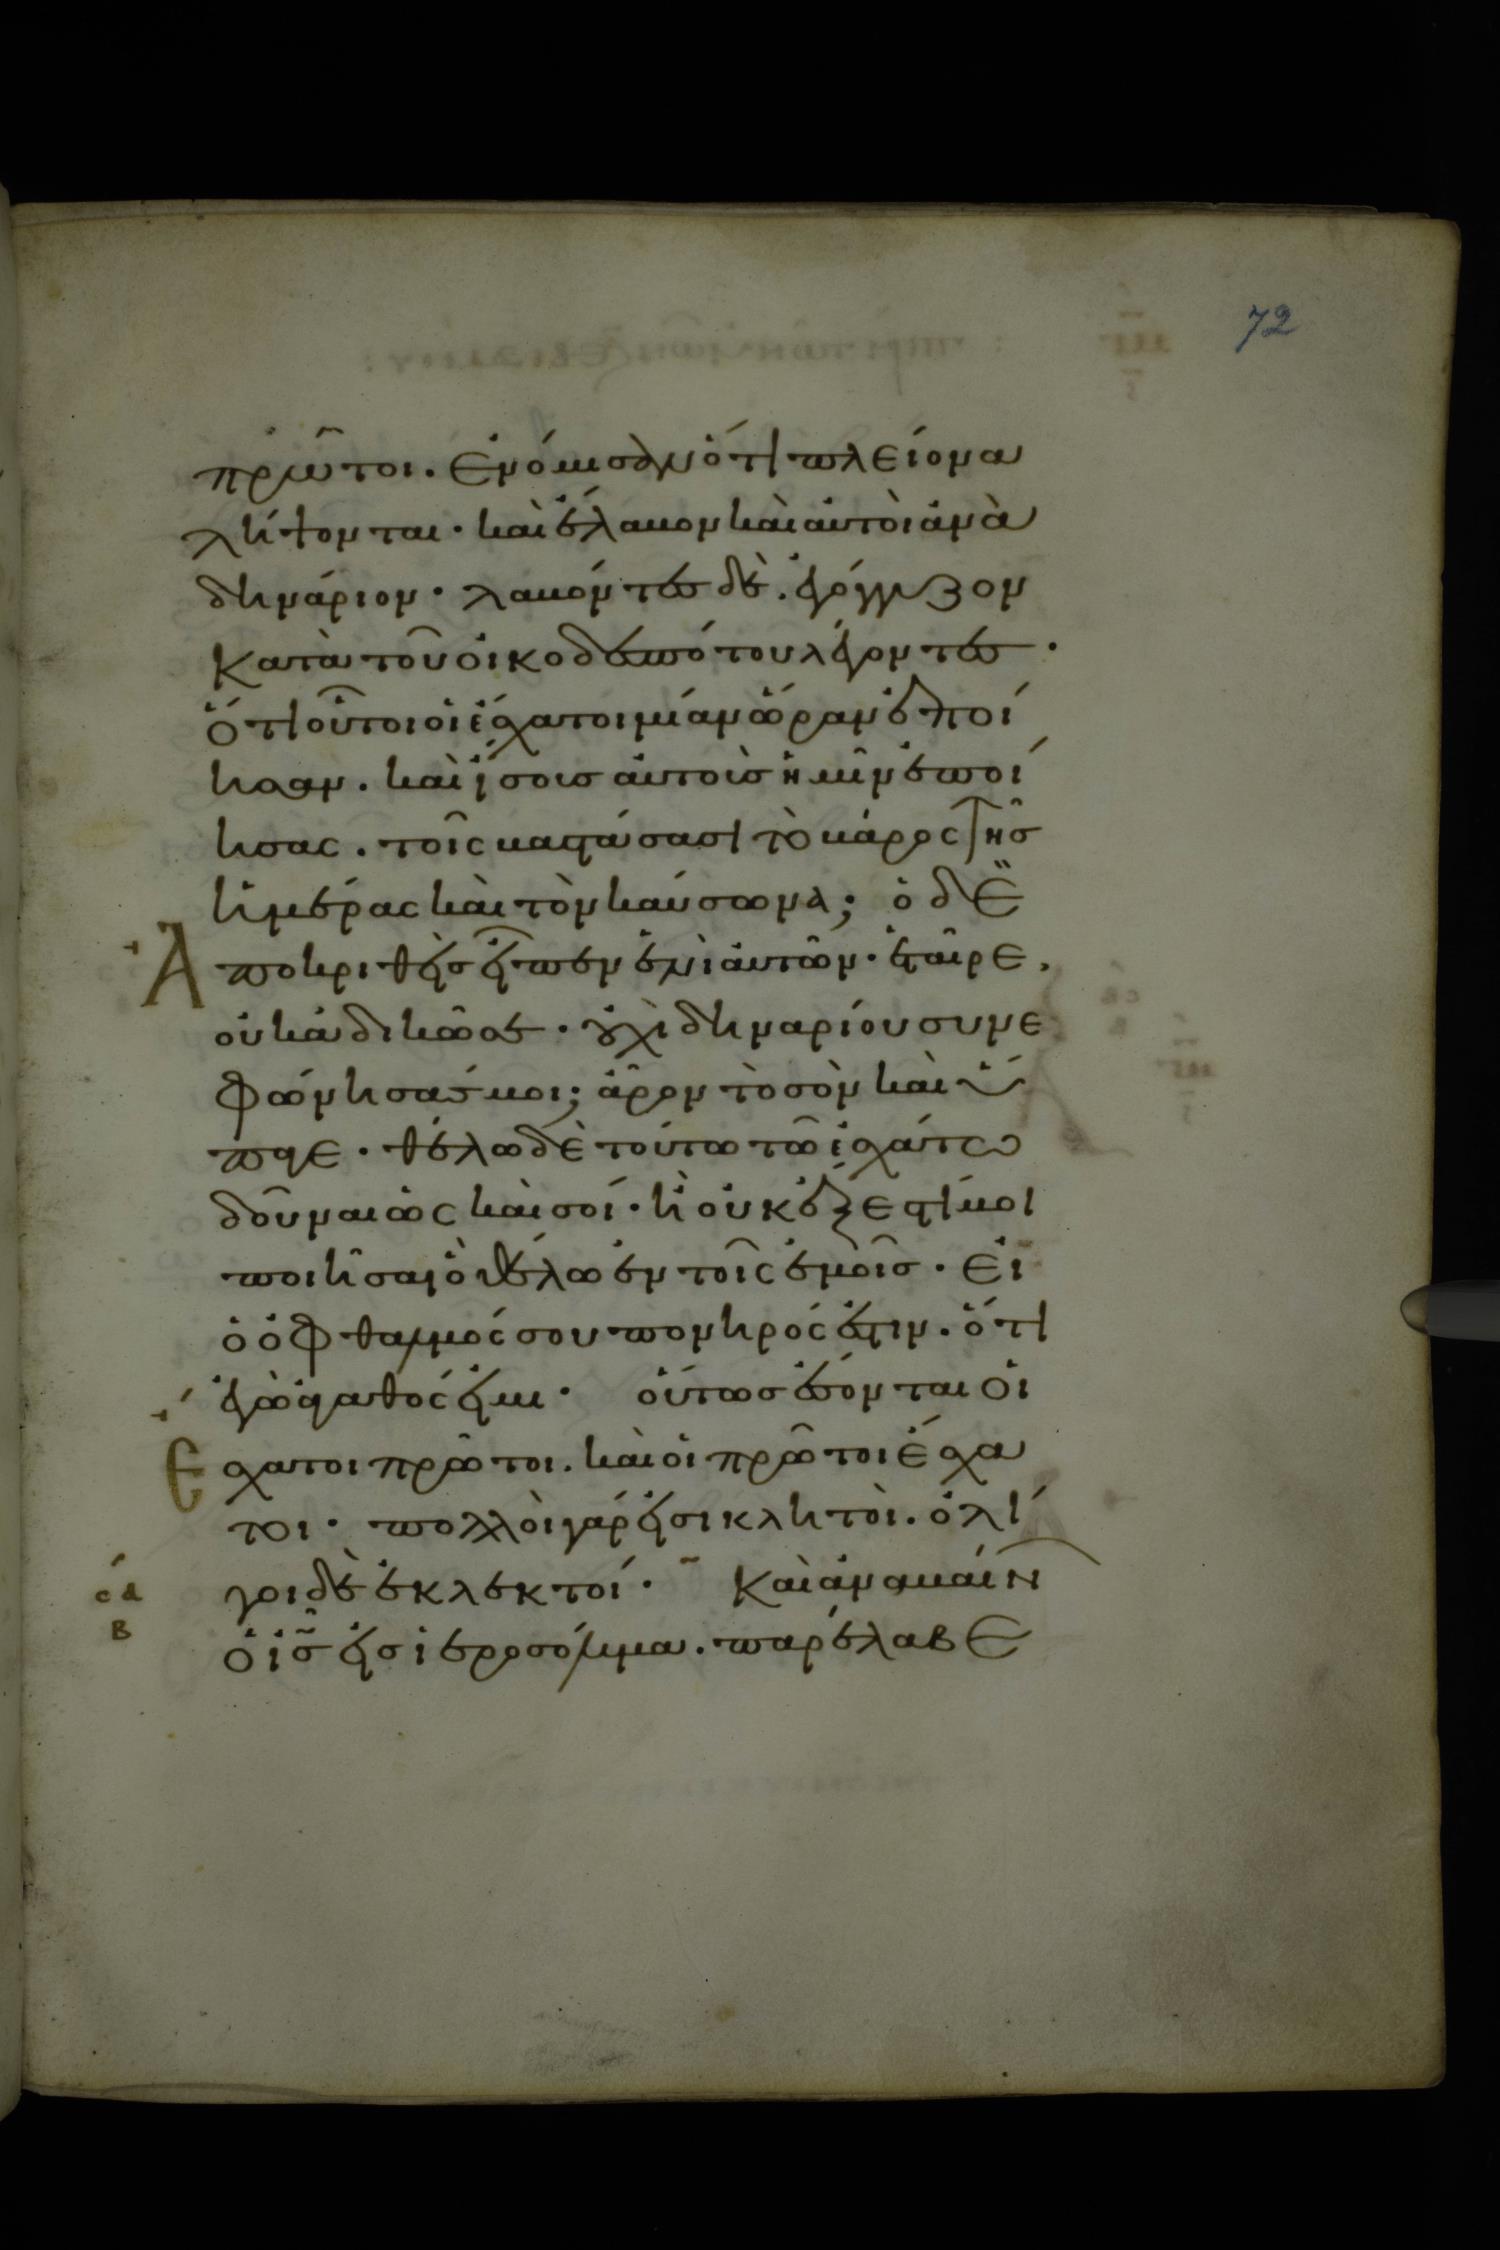 72
πρῶτοι. ἐνόμισαν ὅτι πλείονα
λήψονται· καὶ ἔλαβον καὶ αὐτοὶ ἀνὰ
δηνάριον· λαβόντες δὲ. ἐγόγγυζον
κατὰ τοῦ οἰκοδεσπότου λέγοντες·
ὅτι οὗτοι οἱ ἔσχατοι μίαν ὥραν ἐποί
ησαν. καὶ ἴσους αὐτοὺς ἡμῖν ἐποί
ησας. τοῖς βαστάσασι τὸ βάρος τῆς
ἡμέρας καὶ τὸν καύσωνα; ὁ δὲ
Ἀποκριθεὶς εἶπεν ἑνὶ αὐτῶν· ἑταῖρε,
οὐκ ἀδικῶ σε· οὐχὶ δηναρίου συνε
φώνησάς μοι; ἆρον τὸ σὸν καὶ ὕ
παγε· θέλω δὲ τούτω τῶ ἐσχάτω
δοῦναι ὡς καὶ σοί· ἢ οὐκ ἔξεστί μοι
ποιῆσαι ὃ θέλω ἐν τοῖς ἐμοῖς· εἰ
ὁ ὀφθαλμός σου πονηρός ἐστιν. ὅτι
ἐγὼ ἀγαθός εἰμι· οὕτως ἔσονται οἱ
Ἔσχατοι πρῶτοι. καὶ οἱ πρῶτοι ἔσχα
τοι· πολλοὶ γάρ εἰσι κλητοὶ. ὀλί
γοι δὲ ἐκλεκτοί· Καὶ ἀναβαίνων
ὁ ις εἰς ἱεροσόλυμα. παρέλαβε
σα
β